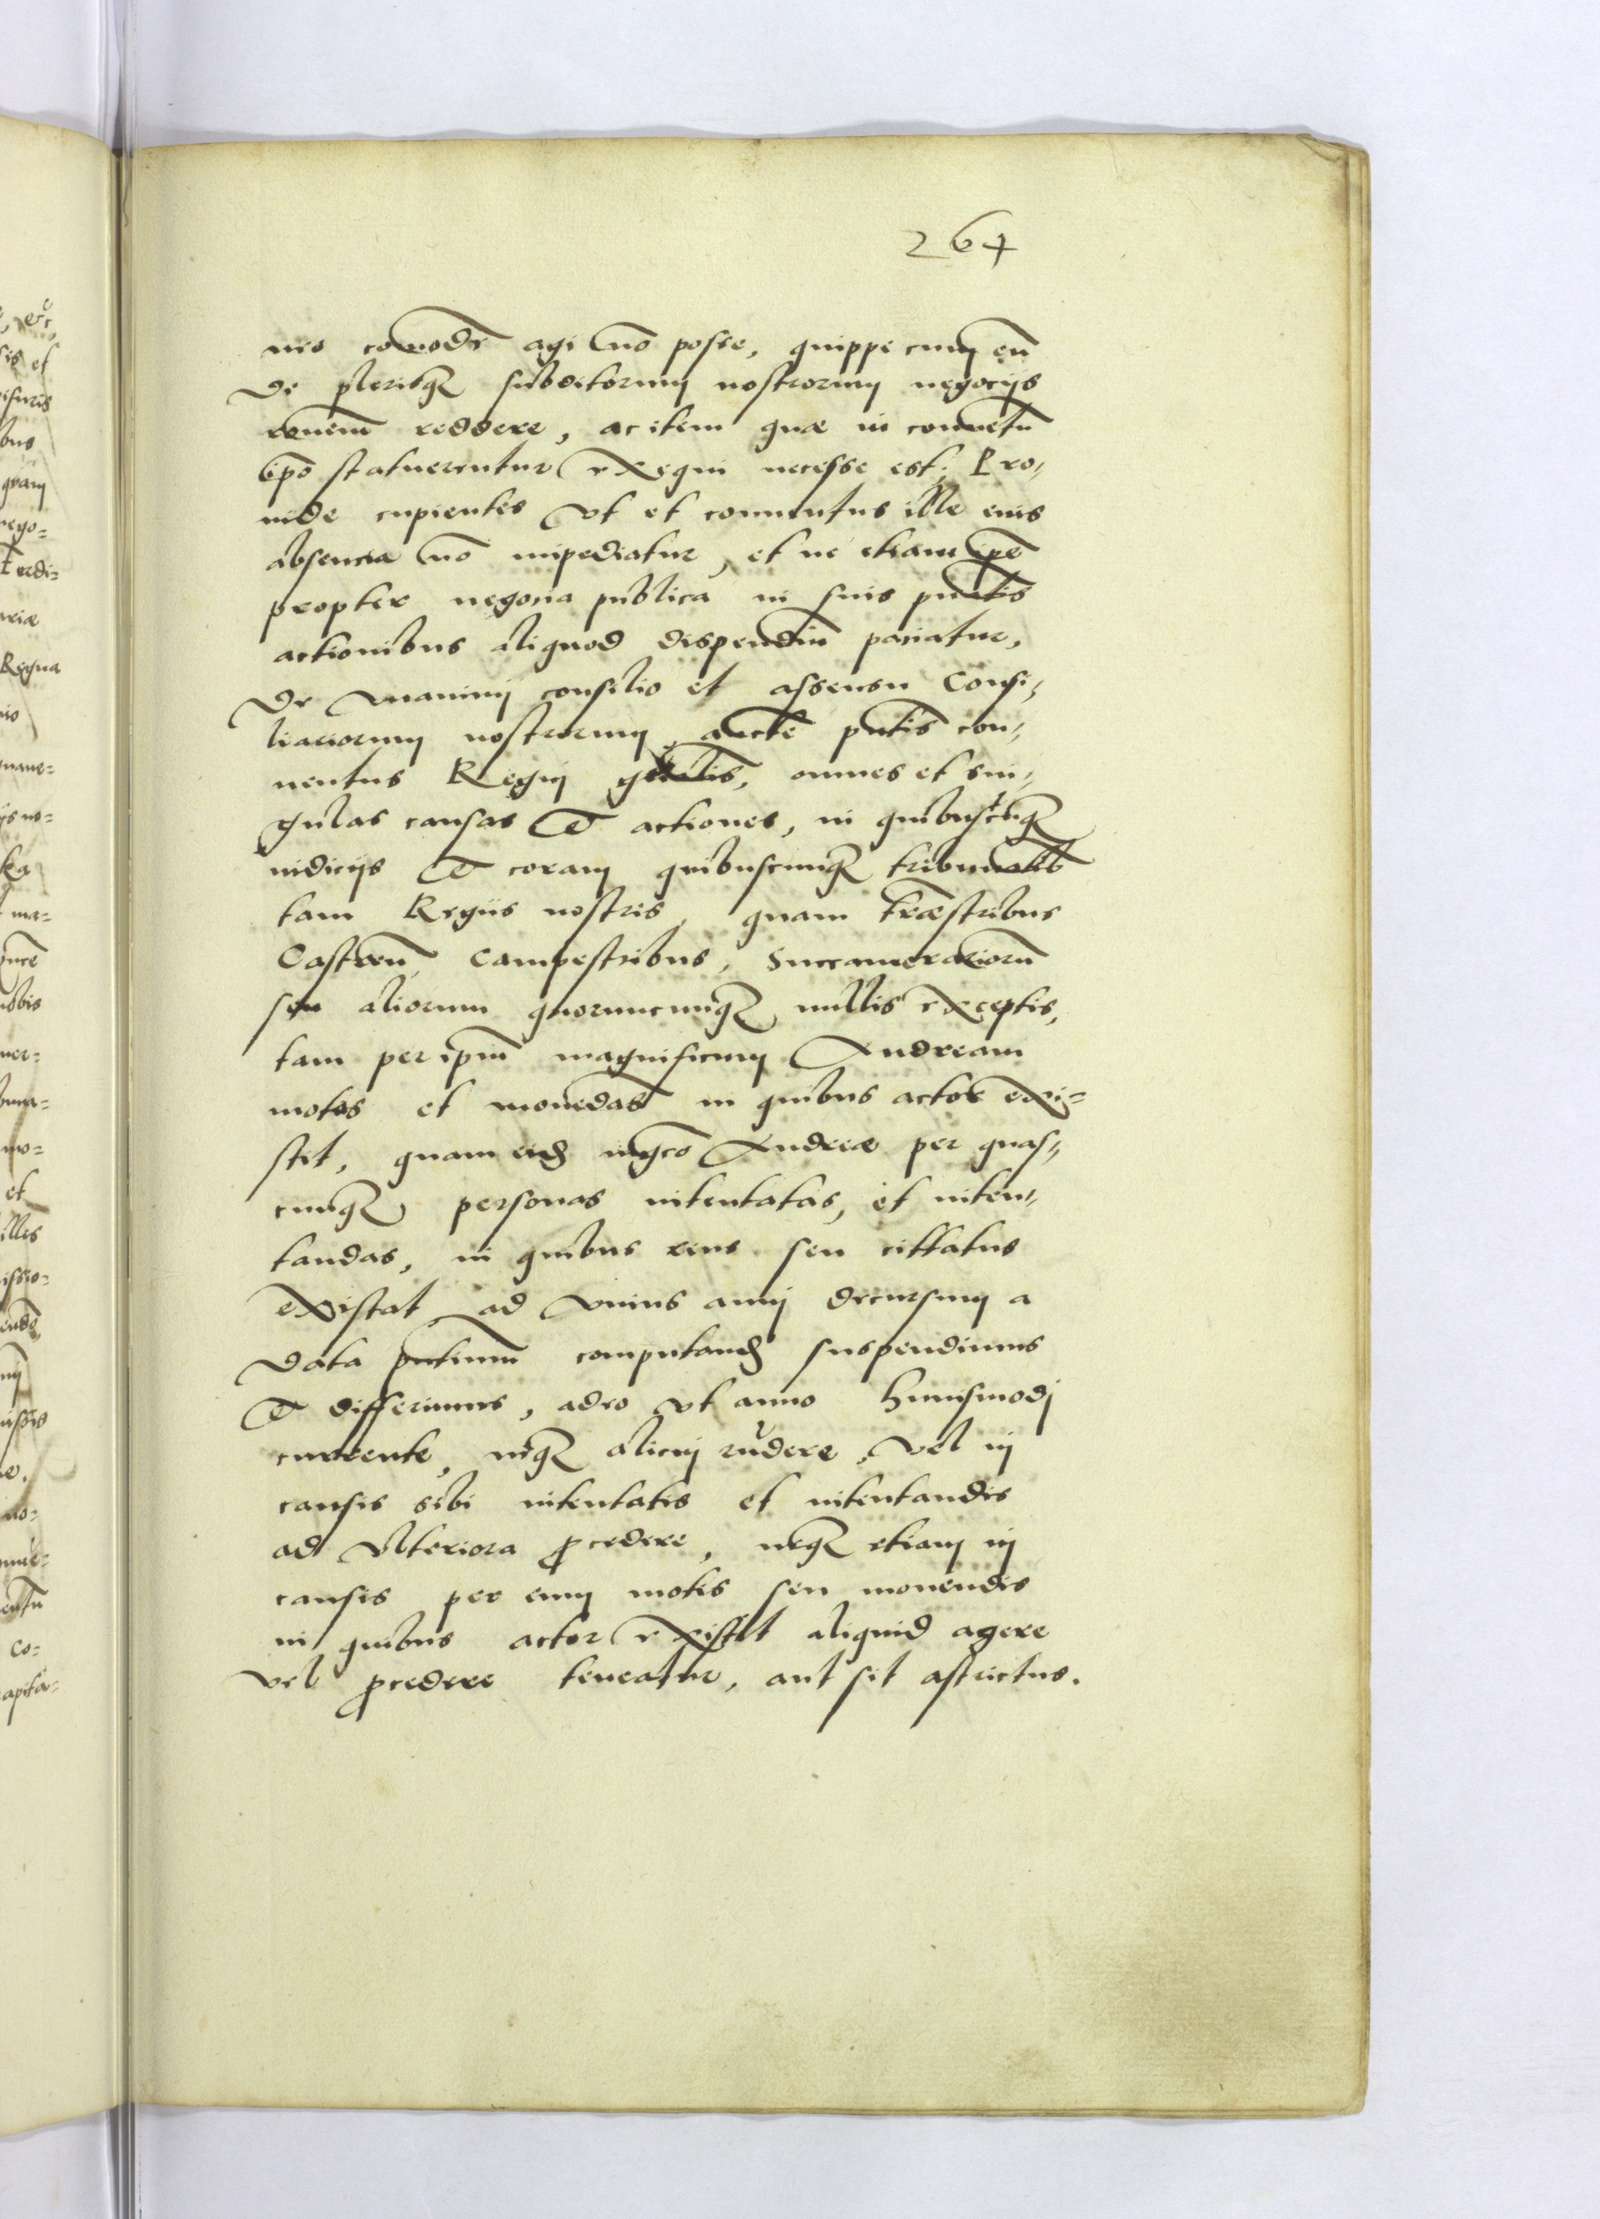 264
nio comodè agi nõ posse, quippe cum eũ
de plerisq3 subditorum nostrorum negocijs
rõnem reddere, ac item quæ in conuetũ
ipõ statuerentur exequi necesse est, Pro,
inde cupientes vt et conuentus ille eius
absencia nõ impediatur, et ne etiam ipẽ
propter negocia publica in suis pntis
actionibus aliquod dispendiũ paciatur,
De vnanimj consilio et assensu Consi,
liariorum nostrorum, aucte pntis con,
uentus Regij gñalis, omnes et sin,
gulas causas et actiones, in quibuscũq3
iudicijs et coram quibuscunq3 tribunalib
tam Regijs nostris, quam trãestribus
Castreñ, campestribus, Succamerariorũ
seu aliorum quoruncunq3 nullis exceptis,
tam per ipm magnificum Andream
motas et mouedas in quibus actor exi=
stit, quam eid mgco Andreæ per quas,
cunq3 personas intentatas, et inten,
tandas, in quibus reus seu cittatus
existat ad vnius anni decursum a
data pntium computand suspendimus
et differimus, adeo vt anno huiusmodj
currente, neq3 alicuj rñdere, vel in
causis sibi intentatis et intentandis
ad vlteriora procedere, neq3 etiam in
causis per eum motis seu mouendis
in quibus actor existit aliquid agere
vel procedere teneatur, aut sit astrictus.